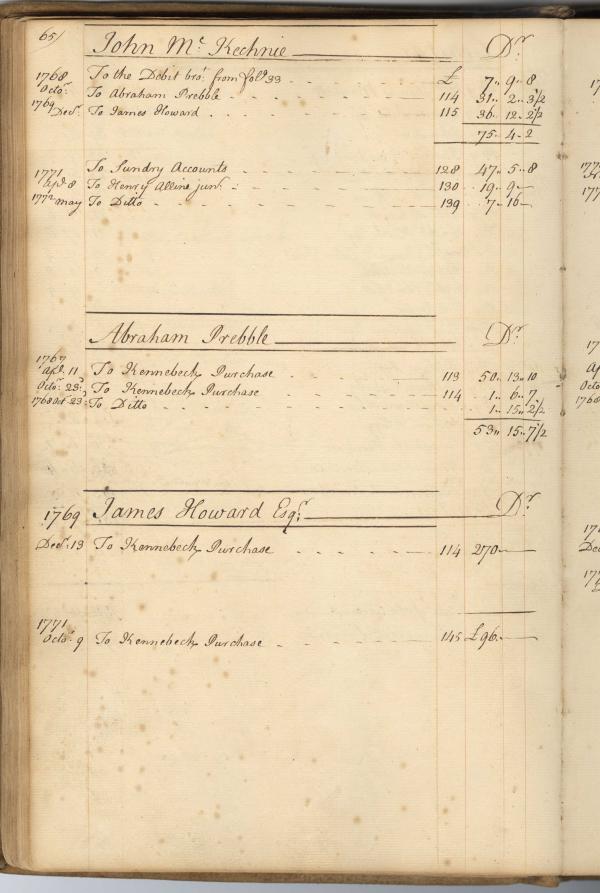 65/
John Mc. Kechnie Dr.
1768 To the Debit bro.t from fol.o 33 £ 7" 9" 8
Octo.r To Abraham Prebble 114 31" 2" 3 1/2
1769 Decr. To James Howard 115 36" 12" 2 1/2
75" 4" 2
1771 To Sundry Accounts 128 47" 5" 8
Apl. 8 To Henry Alline junr. 130 19" 9"—
1772 May To Ditto 139 7" 16—
Abraham Prebble Dr.
1767
Apl. 11 To Kennebeck Purchase 113 50" 13" 10
Octor. 23d. To Kennebeck Purchase 114 1" 6" 7
1768 Oct 23 To Ditto 1" 15" 2 1/2
53" 15" 7 1/2
1769 James Howard Esqr. Dr.
Decr. 13 To Kennebeck Purchase 114 270—
1771
Octor. 9 To Kennebeck Purchase 145 £96—